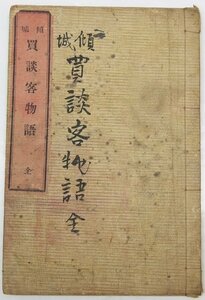 傾城
買談客物語
全
傾城
買談客物語 全